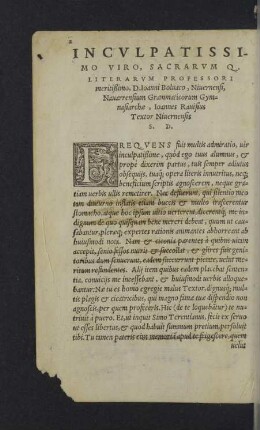 INCVLPATISSI-
MO VIRO, SACRARVM Q.
LITERARVM PROFESSORI
meritissimo, D. Ioanni Boluaco, Niuernensi,
Nauarrensium Grammaticorum Gym-
nasiarcho, Ioannes Rauisius
Textor Niuernensis
S. D.
FREQVENS fuit multis admiratio, uir
inculpatissime, quòd ego tuus alumnus, &
propè dixerim partus, tuis semper adiutus
obsequijs, tuaq; opera literis innutritus, neq;
beneficium scriptis agnoscerem, neque gra-
tiam uerbis ullis remetirer. Nec deessent, qui silentio meo
tam diuturno
stomacho, atque hoc ipsum uitio uerterent, in-
dignum de quo quisquam bene mereri debeat, quum ut cau-
sabantur, pleræq; expertes rationis animantes abhorreant ab
huiusmodi nota. Nam & ciconia parentes à quibus uitam
accepit, senio fessos nutrit & & glires suis geni-
toribus iam senescentibus, eadem pietate, accita me-
ritum refundentes. Alij item quibus eadem placebat senten-
tia, conuicijs me incessebant, & huiusmodi uerbis alloque-
bantur. Næ tu es homo egregiè malus Textor, dignusq; mul-
tis plagis & cicatricibus, qui magno sumo tuæ dispendio non
agnoscis, per quem profeceris. Hic (de te loquebantur) te nu-
triuit à puero. Et, ut inquit Simo Terentianus, fecit ex seruo ut
esses libertus, & quod habuit summum pretium, persoluit
tibi. Tu tamen pateris eius memoriam apud te frigescere, quem